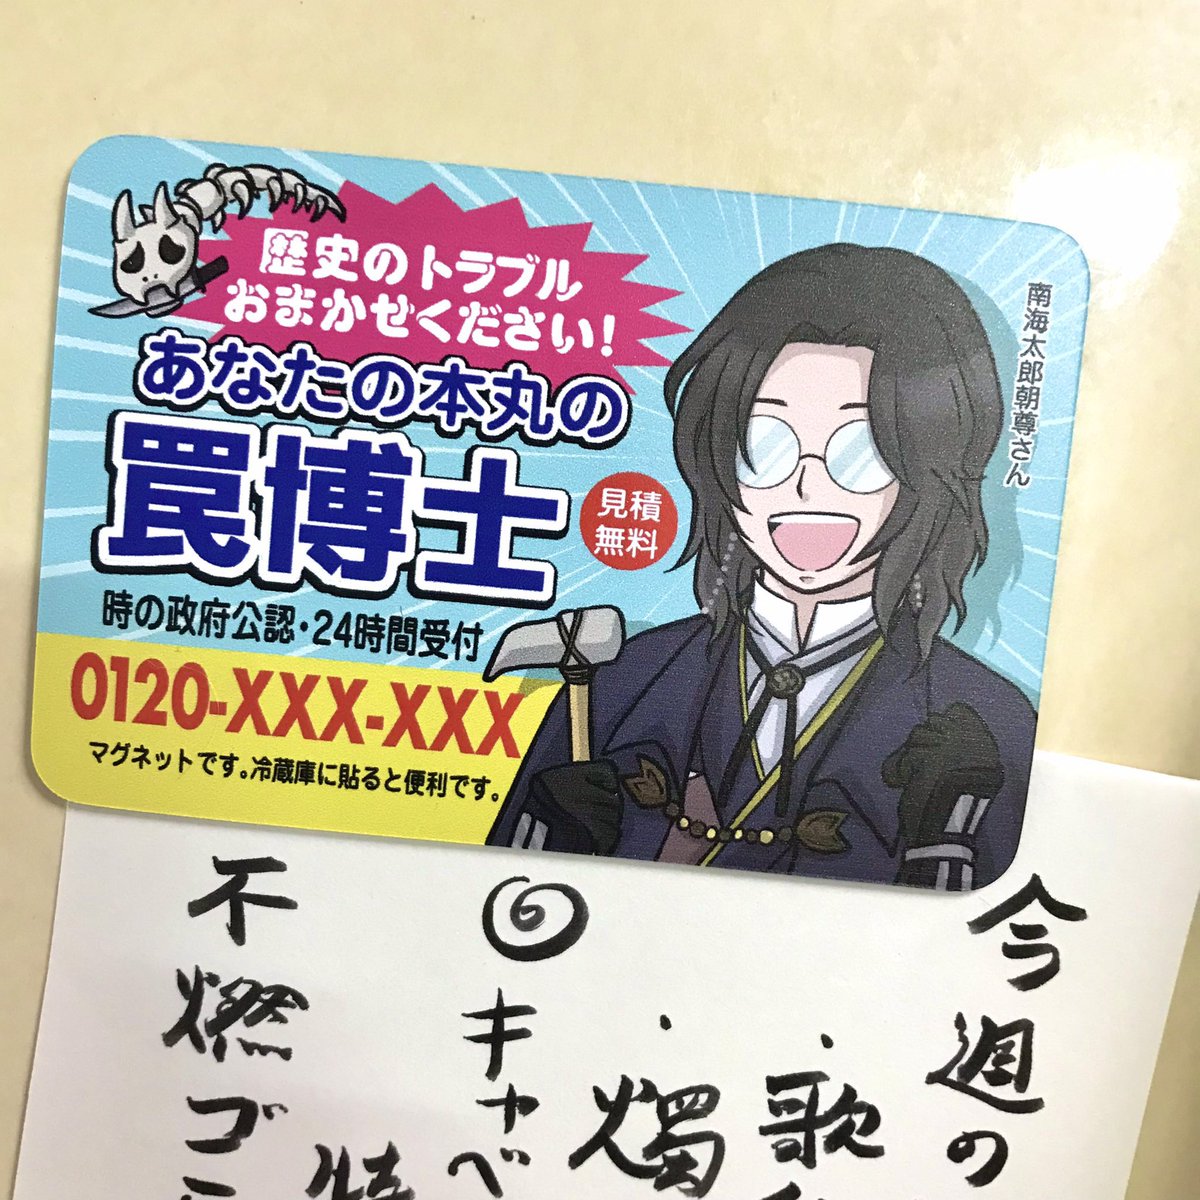 歴史のトラブル
おまかせください!
あなたの本丸の
罠博士
見積
無料
時の政府公認・24時間受付
0120-XXX-XXX
マグネットです。冷蔵庫に貼ると便利です。
南海太郎朝尊さん
今週の
・歌
・燭
◎キャベ
特
不燃ゴミ